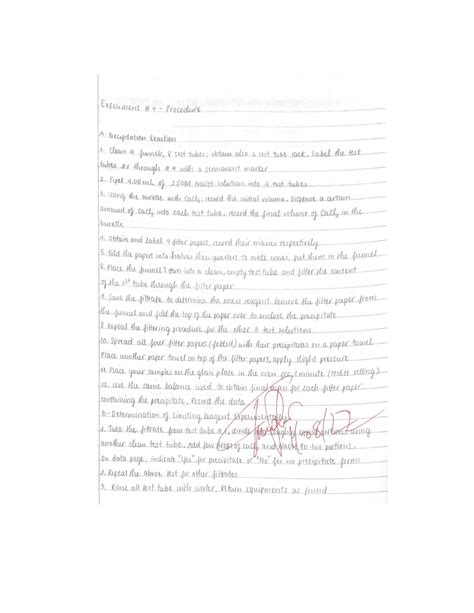 Experiment #4 - Procedure
A- Precipitation Reaction
1. Clean 4 funnels, 8 test tubes, obtain also a test tube rack. Label the test
tubes #1 through #4 with a permanent marker
2. Pipet 4.00 mL of solution into 4 test tubes
3. Using the burette with CaCl2, record the initial volume. Dispense a certain
amount of CaCl2 into each test tube, record the final volume of CaCl2 in the
burette
4. Obtain and label 4 filter papers, record their masses respectively
5. Fold the papers into halves then quarters to make cones, put them in the funnel
6. Place the funnel into a clean, empty test tube and filter the content
of the 1st tube through the filter paper
7. Save the filtrate to determine the excess reagent. Remove the filter paper from
the funnel and fold the top of the paper over to enclose the precipitate
8. Repeat the filtering procedure for the other 3 test solutions
10. Spread all four filter papers (folded) with their precipitates on a paper towel
Place another paper towel on top of the filter papers, apply slight pressure
11. Place your samples on the glass plate in the oven for 1 minute (HIGH setting)
12. Use the same balance used to obtain final mass for each filter paper
containing the precipitate. Record the data
B- Determination of Limiting Reagent Experimentally
1. Take the filtrate from test tube #1, divide into using
another clean test tube. Add few drops of each and to two portions.
On data page, indicate "Yes" for precipitate or "No" for no precipitate forms
2. Repeat the above test for other filtrates
3. Rinse all test tube with water. Return equipments as found